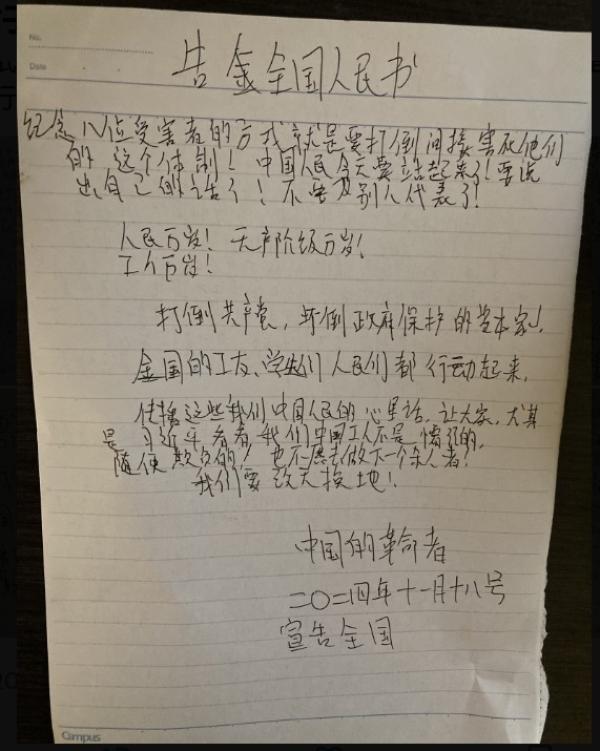 No.
Date
告全全国人民书
纪念八位受害者的方式就是要打倒间接害死他们
的 这个体制！中国人民今天要站起来了！要说
出自己的话了！不要 别人代表了！
人民万岁！无产阶级万岁！
工人万岁！
打倒共产党，打倒政府保护的资本家！
全国的工友、学生们 人民们都行动起来，
传播这些我们中国人民的心里话，让大家，尤其
是习近平看看，我们中国工人不是懦弱的，
随便欺负的！也不愿去做下一个杀人者！
我们要改天换地！
中国的革命者
二〇二四年十一月十八号
宣告全国
Campus